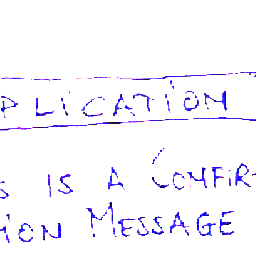 PLICATION
S IS A CONFIR-
TION MESSAGE